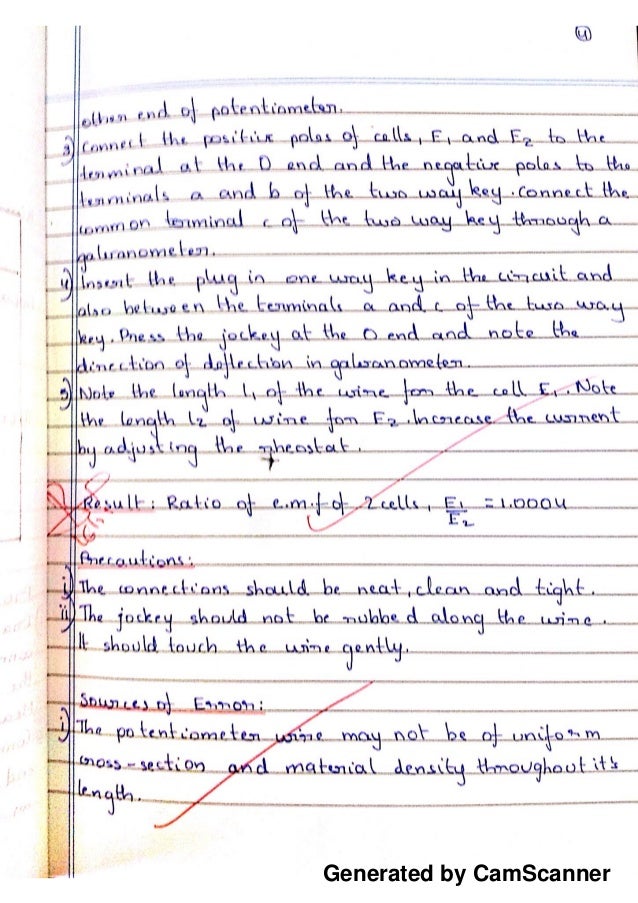 4
other end of potentiometer.
3) Connect the positive poles of cells, E1 and E2 to the
terminal at the O end and the negative poles to the
terminals a and b of the two way key. Connect the
common terminal c of the two way key through a
galvanometer.
4) Insert the plug in one way key in the circuit and
also between the terminals a and c of the two way
key. Press the jockey at the O end and note the
direction of deflection in galvanometer.
5) Note the length l1 of the wire for the cell E1. Note
the length l2 of wire for E2. Increase the current
by adjusting the rheostat.
Result: Ratio of e.m.f of 2 cells, E1/E2 = 1.0004
Precautions:
i) The connections should be neat, clean and tight.
ii) The jockey should not be rubbed along the wire.
It should touch the wire gently.
Sources of Error:
i) The potentiometer wire may not be of uniform
cross-section and material density throughout it's
length.
Generated by CamScanner